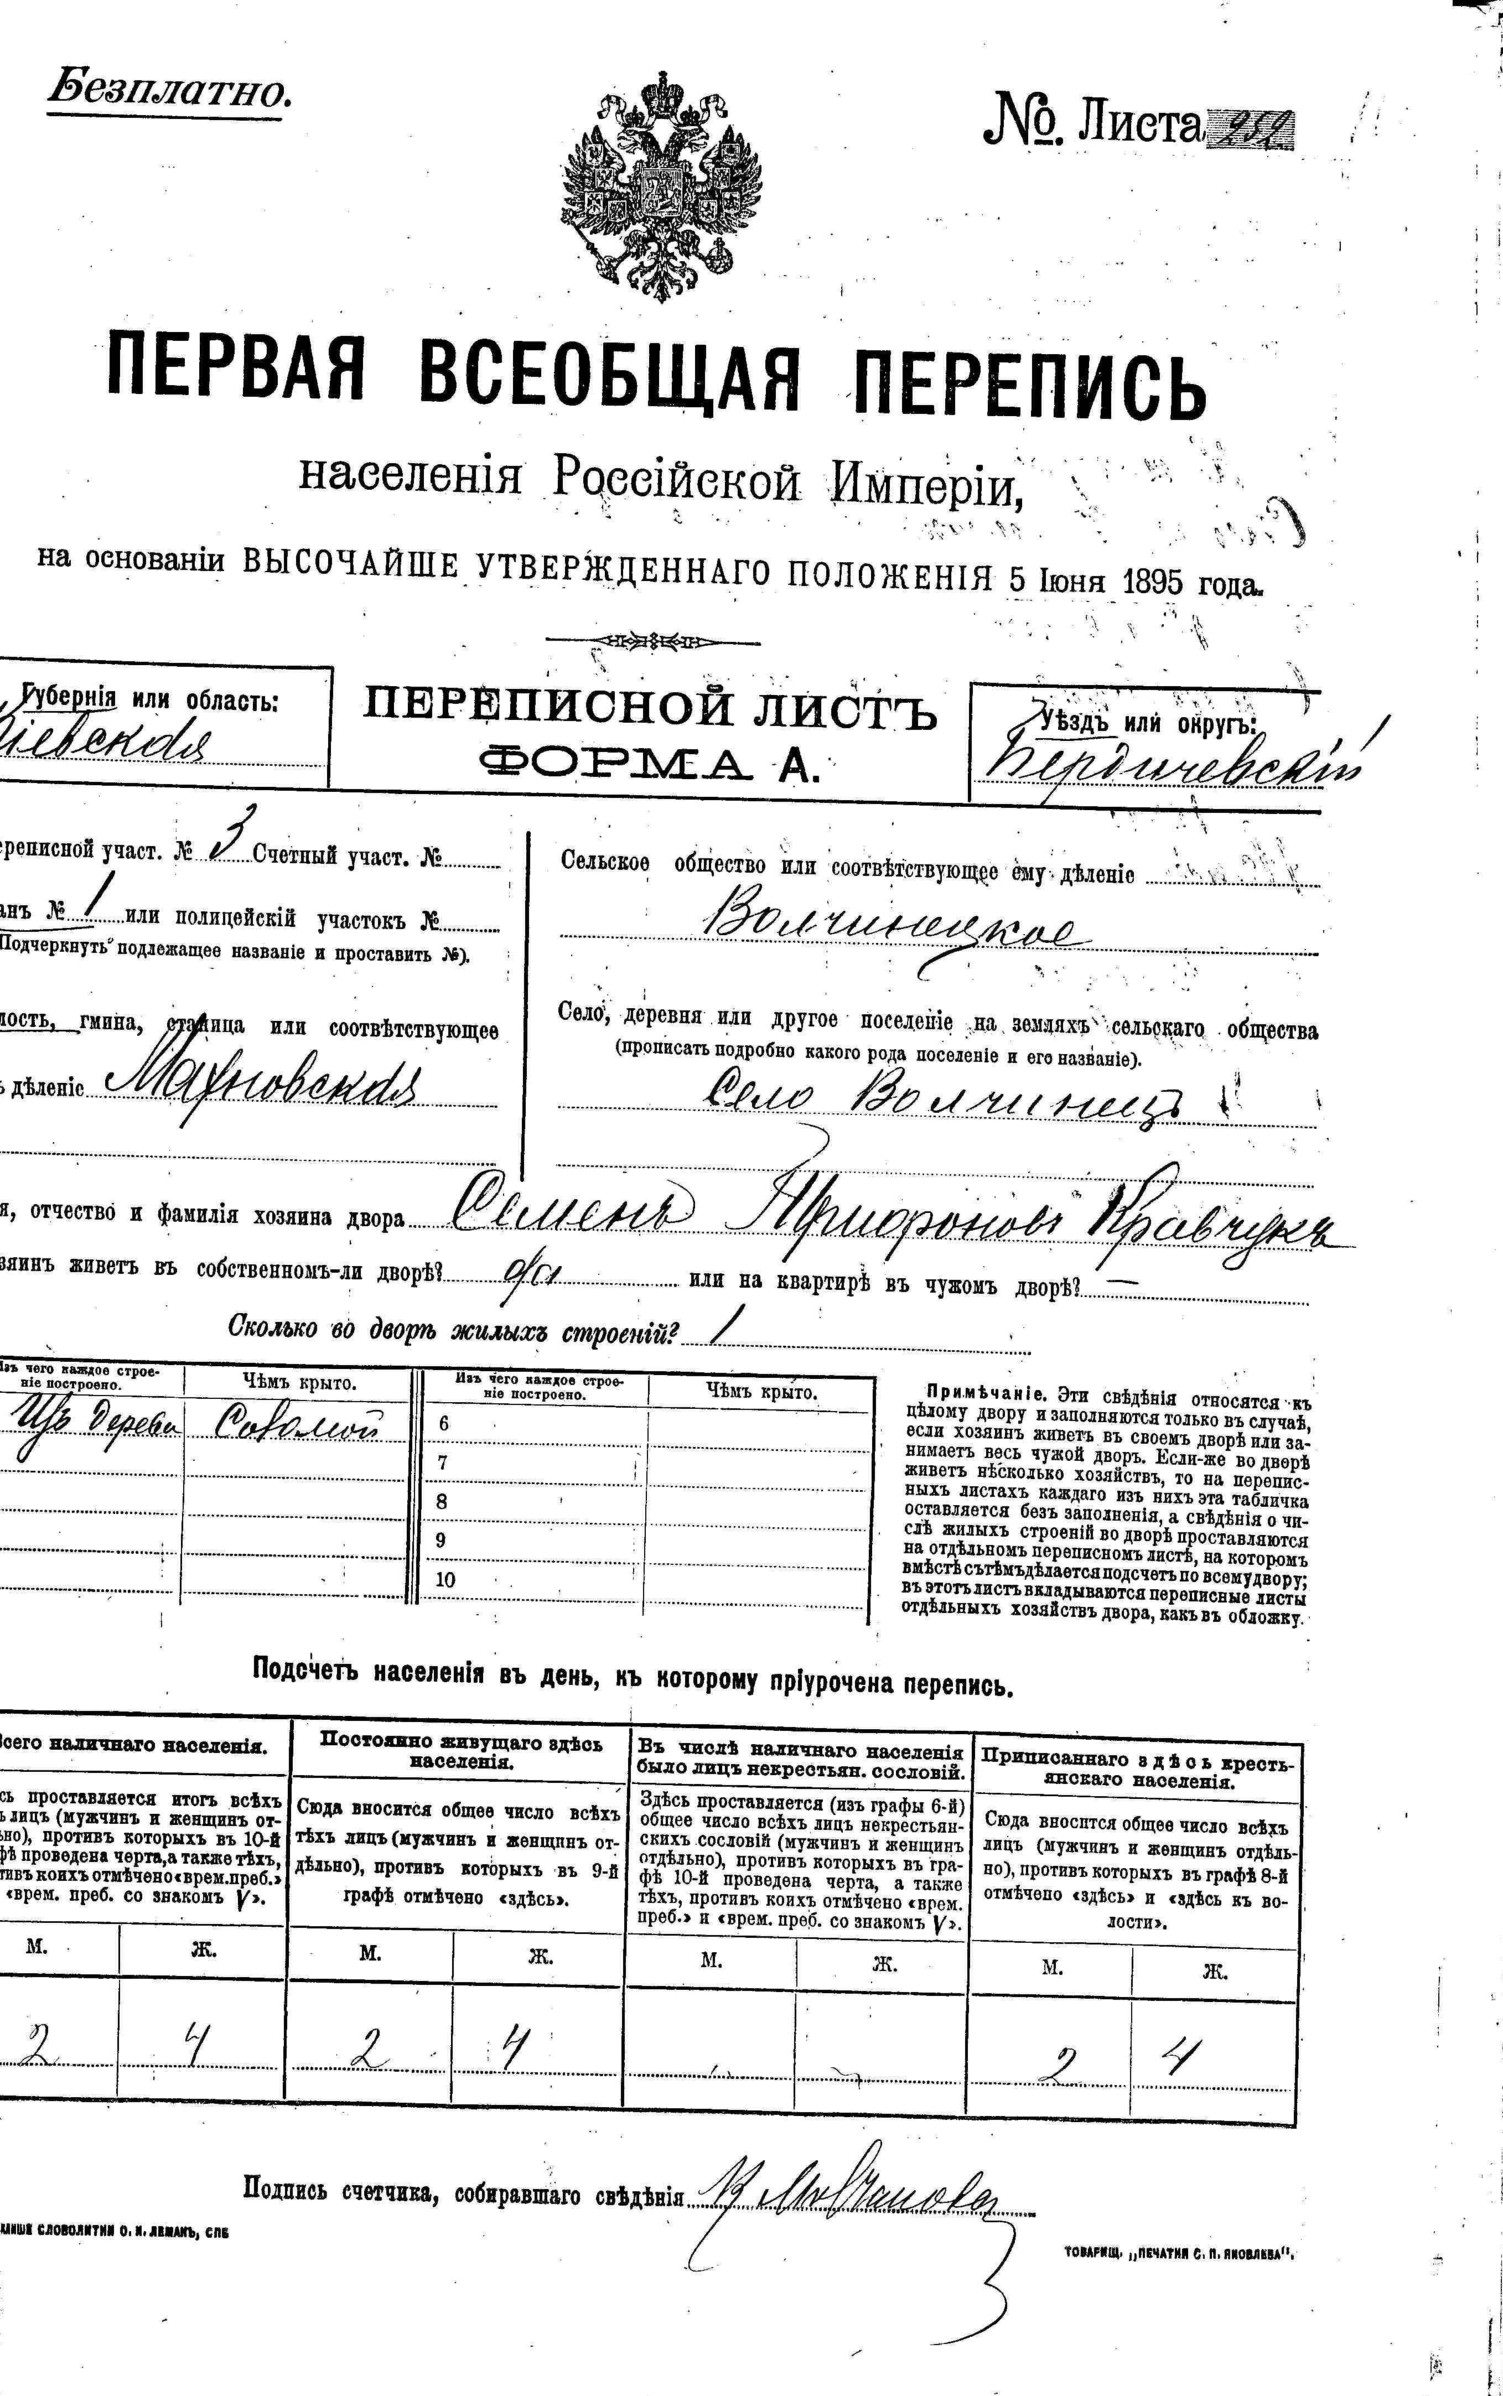 Безплатно.
№. Листа 252
ПЕРВАЯ ВСЕОБЩАЯ ПЕРЕПИСЬ
населенія Россійской Имперіи,
на основаніи ВЫСОЧАЙШЕ УТВЕРЖДЕННАГО ПОЛОЖЕНІЯ 5 Іюня 1895 года.
Губернія или область:
іевская
ПЕРЕПИСНОЙ ЛИСТЪ
ФОРМА А.
Уѣздъ или округъ:
Бердичевскій
реписной участ. № 3 Счетный участ. №
анъ № 1 или полицейскій участокъ №
Подчеркнуть подлежащее названіе и проставить №).
лость, гмина, станица или соотвѣтствующее
ъ дѣленіе Махновская
Сельское общество или соотвѣтствующее ему дѣленіе
Волчинецкое
Село, деревня или другое поселеніе на земляхъ сельскаго общества
(прописать подробно какого рода поселеніе и его названіе).
Село Волчинецъ
я, отчество и фамилія хозяина двора Семенъ Кравчукъ
зяинъ живетъ въ собственномъ-ли дворѣ? да или на квартирѣ въ чужомъ дворѣ? —
Сколько во дворѣ жилыхъ строеній? 1
Изъ чего каждое строе-
ніе построено.
Чѣмъ крыто.
Изъ чего каждое строе-
ніе построено.
Чѣмъ крыто.
Изъ дерева Соломой
6
7
8
9
10
Примѣчаніе. Эти свѣдѣнія относятся къ
цѣлому двору и заполняются только въ случаѣ,
если хозяинъ живетъ въ своемъ дворѣ или за-
нимаетъ весь чужой дворъ. Если-же во дворѣ
живетъ нѣсколько хозяйствъ, то на перепис-
ныхъ листахъ каждаго изъ нихъ эта табличка
оставляется безъ заполненія, а свѣдѣнія о чи-
слѣ жилыхъ строеній во дворѣ проставляются
на отдѣльномъ переписномъ листѣ, на которомъ
вмѣстѣ съ тѣмъ дѣлается подсчетъ по всему двору;
въ этотъ листъ вкладываются переписные листы
отдѣльныхъ хозяйствъ двора, какъ въ обложку.
Подсчетъ населенія въ день, къ которому пріурочена перепись.
Всего наличнаго населенія.
сь проставляется итогъ всѣхъ
ъ лицъ (мужчинъ и женщинъ от-
ьно), противъ которыхъ въ 10-й
фѣ проведена черта, а также тѣхъ,
тивъ коихъ отмѣчено «врем. преб.»
«врем. преб. со знакомъ V».
Постоянно живущаго здѣсь
населенія.
Сюда вносится общее число всѣхъ
тѣхъ лицъ (мужчинъ и женщинъ от-
дѣльно), противъ которыхъ въ 9-й
графѣ отмѣчено «здѣсь».
Въ числѣ наличнаго населенія
было лицъ некрестьян. сословій.
Здѣсь проставляется (изъ графы 6-й)
общее число всѣхъ лицъ некрестьян-
скихъ сословій (мужчинъ и женщинъ
отдѣльно), противъ которыхъ въ гра-
фѣ 10-й проведена черта, а также
тѣхъ, противъ коихъ отмѣчено «врем.
преб.» и «врем. преб. со знакомъ V».
Приписаннаго здѣсь кресть-
янскаго населенія.
Сюда вносится общее число всѣхъ
лицъ (мужчинъ и женщинъ отдѣль-
но), противъ которыхъ въ графѣ 8-й
отмѣчено «здѣсь» и «здѣсь къ во-
лости».
М. Ж. М. Ж. М. Ж. М. Ж.
2 4 2 4 - - 2 4
Подпись счетчика, собиравшаго свѣдѣнія
СЛОВОЛИТНИ О. И. ЛЕМАНЪ, СПБ
ТОВАРИЩ. „ПЕЧАТНЯ С. П. ЯКОВЛЕВА".